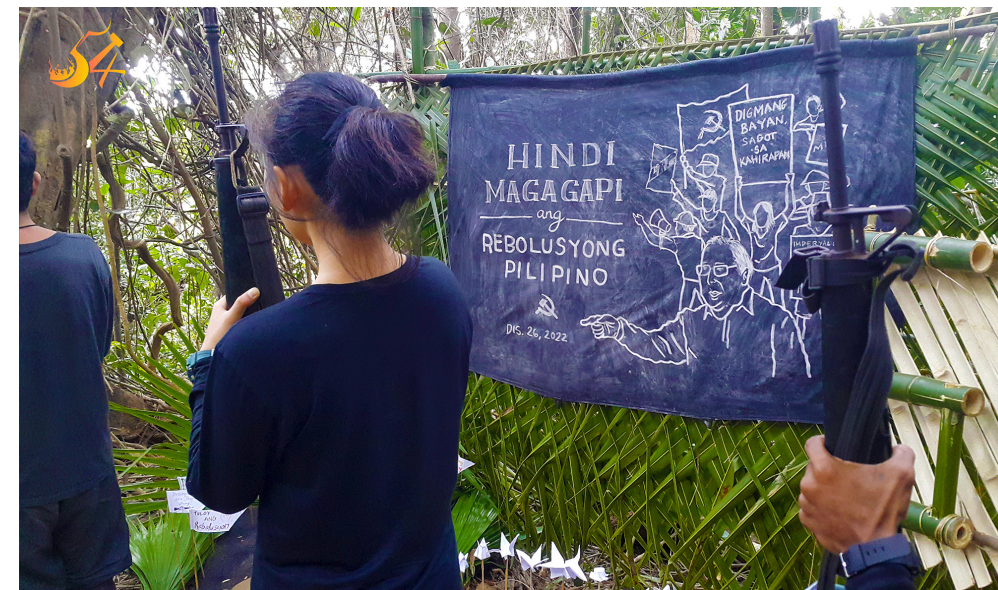 54
HINDI
MAGAGAPI
ang
REBOLUSYONG
PILIPINO
DIS. 26, 2022
DIGMANG
BAYAN,
SAGOT
SA
KAHIRAPAN
M
IMPERYAL
TULOY
ANG
Rebolusyon